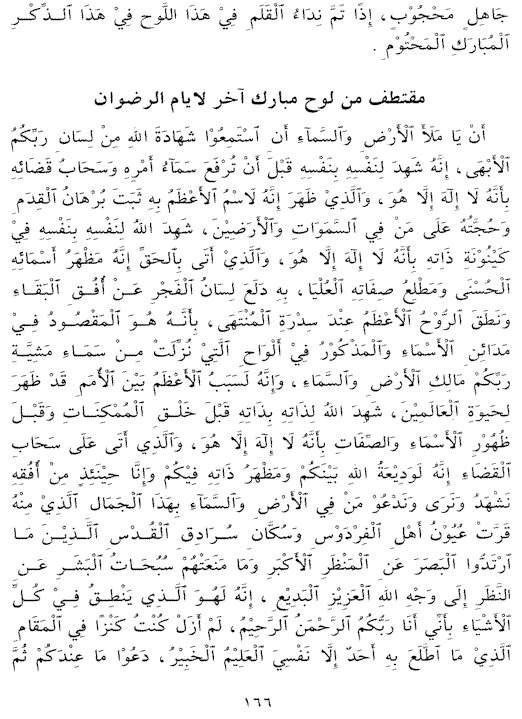 جَاهِلٍ مَحْجُوْبٍ، إِذًا تَمَّ نِدَاءُ ٱلْقَلَمِ فِيْ هَذَا اللَّوحِ فِيْ هَذَا ٱلذِّكْرِ
ٱلْمُبَارَكِ ٱلْمَحْتُوْمِ .
مقتطف من لوح مبارك آخر لايام الرضوان
أَنْ يَا مَلَأَ ٱلْأَرْضِ وَٱلسَّمآءِ أَن ٱسْتَمِعُوْا شَهَادَةَ اللهِ مِنْ لِسَانِ رَبِّكُمُ
ٱلْأَبْهَى، إِنَّهُ شَهِدَ لِنَفْسِهِ بِنَفْسِهِ قَبْلَ أَنْ تُرْفَعَ سَمَآءُ أَمْرِهِ وَسَحَابُ قَضَائِهِ
بِأَنَّهُ لَا إِلَهَ إِلَّا هُوَ، وَٱلَّذِيْ ظَهَرَ إِنَّهُ لَاسْمُ ٱلأَعْظَمُ بِهِ ثَبَتَ بُرْهَانُ ٱلقِدَمِ
وَحُجَّتُهُ عَلَى مَنْ فِي ٱلسَّمَوَاتِ وَٱلْأَرَضِيْنَ، شَهِدَ اللهُ لِنَفْسِهِ بِنَفْسِهِ فِيْ
كَيْنُوْنَةِ ذَاتِهِ بِأَنَّهُ لَا إِلَهَ إِلَّا هُوَ، وَٱلَّذِيْ أَتَى بِٱلحَقِّ إِنَّهُ مَظْهَرُ أَسْمَائِهِ
ٱلْحُسْنَى وَمَطْلِعُ صِفَاتِهِ ٱلْعُلْيَا، بِهِ دَلَعَ لِسَانُ ٱلْفَجْرِ عَـنْ أُفُـقِ ٱلْبَقَـاءِ
وَنَطَقَ ٱلرُّوْحُ ٱلأَعْظَمُ عِنْدَ سِدْرَةِ ٱلْمُنْتَهَى، بِأَنَّـهُ هُـوَ ٱلْمَقْصُوْدُ فِـيْ
مَدَائِنِ ٱلْأَسْمَاءِ وَٱلْمَذْكُوْرُ فِيْ أَلْوَاحِ ٱلَّتِيْ نُزِّلَتْ مِـنْ سَمَـاءِ مَشِيَّـةِ
رَبِّكُمْ مَالِكِ ٱلْأَرْضِ وَٱلسَّمَاءِ، وَإِنَّهُ لَسَبَبُ ٱلْأَعْظَمُ بَيْنَ ٱلْأُمَمِ قَدْ ظَهَرَ
لِحَيوةِ ٱلْعَالَمِيْنَ، شَهِدَ اللهُ لِذَاتِهِ بِذَاتِهِ قَبْلَ خَلْـقِ ٱلْمُمْكِنَـاتِ وَقَبْـلَ
ظُهُوْرِ ٱلْأَسْمَاءِ وَٱلصِّفَاتِ بِأَنَّهُ لَا إِلَهَ إِلَّا هُوَ، وَٱلَّذِي أَتَى عَلَى سَحَابِ
ٱلْقَضَاءِ إِنَّهُ لَوَدِيْعَةُ اللهِ بَيْنَكُمْ وَمَظْهَرُ ذَاتِهِ فِيْكُمْ وَإِنَّا حِيْنَئِذٍ مِنْ أُفُقِهِ
نَشْهَدُ وَنَرَى وَنَدْعُوْ مَنْ فِي ٱلْأَرْضِ وَٱلسَّمَآءِ بِهَذَا ٱلْجَمَالِ ٱلَّذِيْ مِنْهُ
قَرَّتْ عُيُوْنُ أَهْلِ ٱلْفِرْدَوْسِ وَسُكَّانِ سُرَادِقِ ٱلْقُدْسِ ٱلَّـذِيْـنَ مَـا
ٱرْتَدُّوا ٱلْبَصَرَ عَنِ ٱلْمَنْظَرِ ٱلْأَكْبَرِ وَمَا مَنَعَتْهُمْ سُبُحَاتُ ٱلْبَشَرِ عَـنِ
ٱلنَّظَرِ إِلَى وَجْهِ اللهِ ٱلْعَزِيْزِ ٱلْبَدِيْعِ، إِنَّهُ لَهُوَ ٱلَّـذي يَنْطِـقُ فِـيْ كُـلِّ
ٱلْأَشْيَاءِ بِأَنِّي أَنَا رَبُّكُمُ ٱلرَّحْمَنُ ٱلرَّحِيْمُ، لَمْ أَزَلْ كُنْتُ كَنْزًا فِي ٱلْمَقَامِ
ٱلَّذِيْ مَا ٱطَّلَعَ بِهِ أَحَدٌ إِلَّا نَفْسِيَ ٱلْعَلِيْمُ ٱلْخَبِيْرُ، دَعُوْا مَا عِنْدَكُمْ ثُمَّ
١٦٦